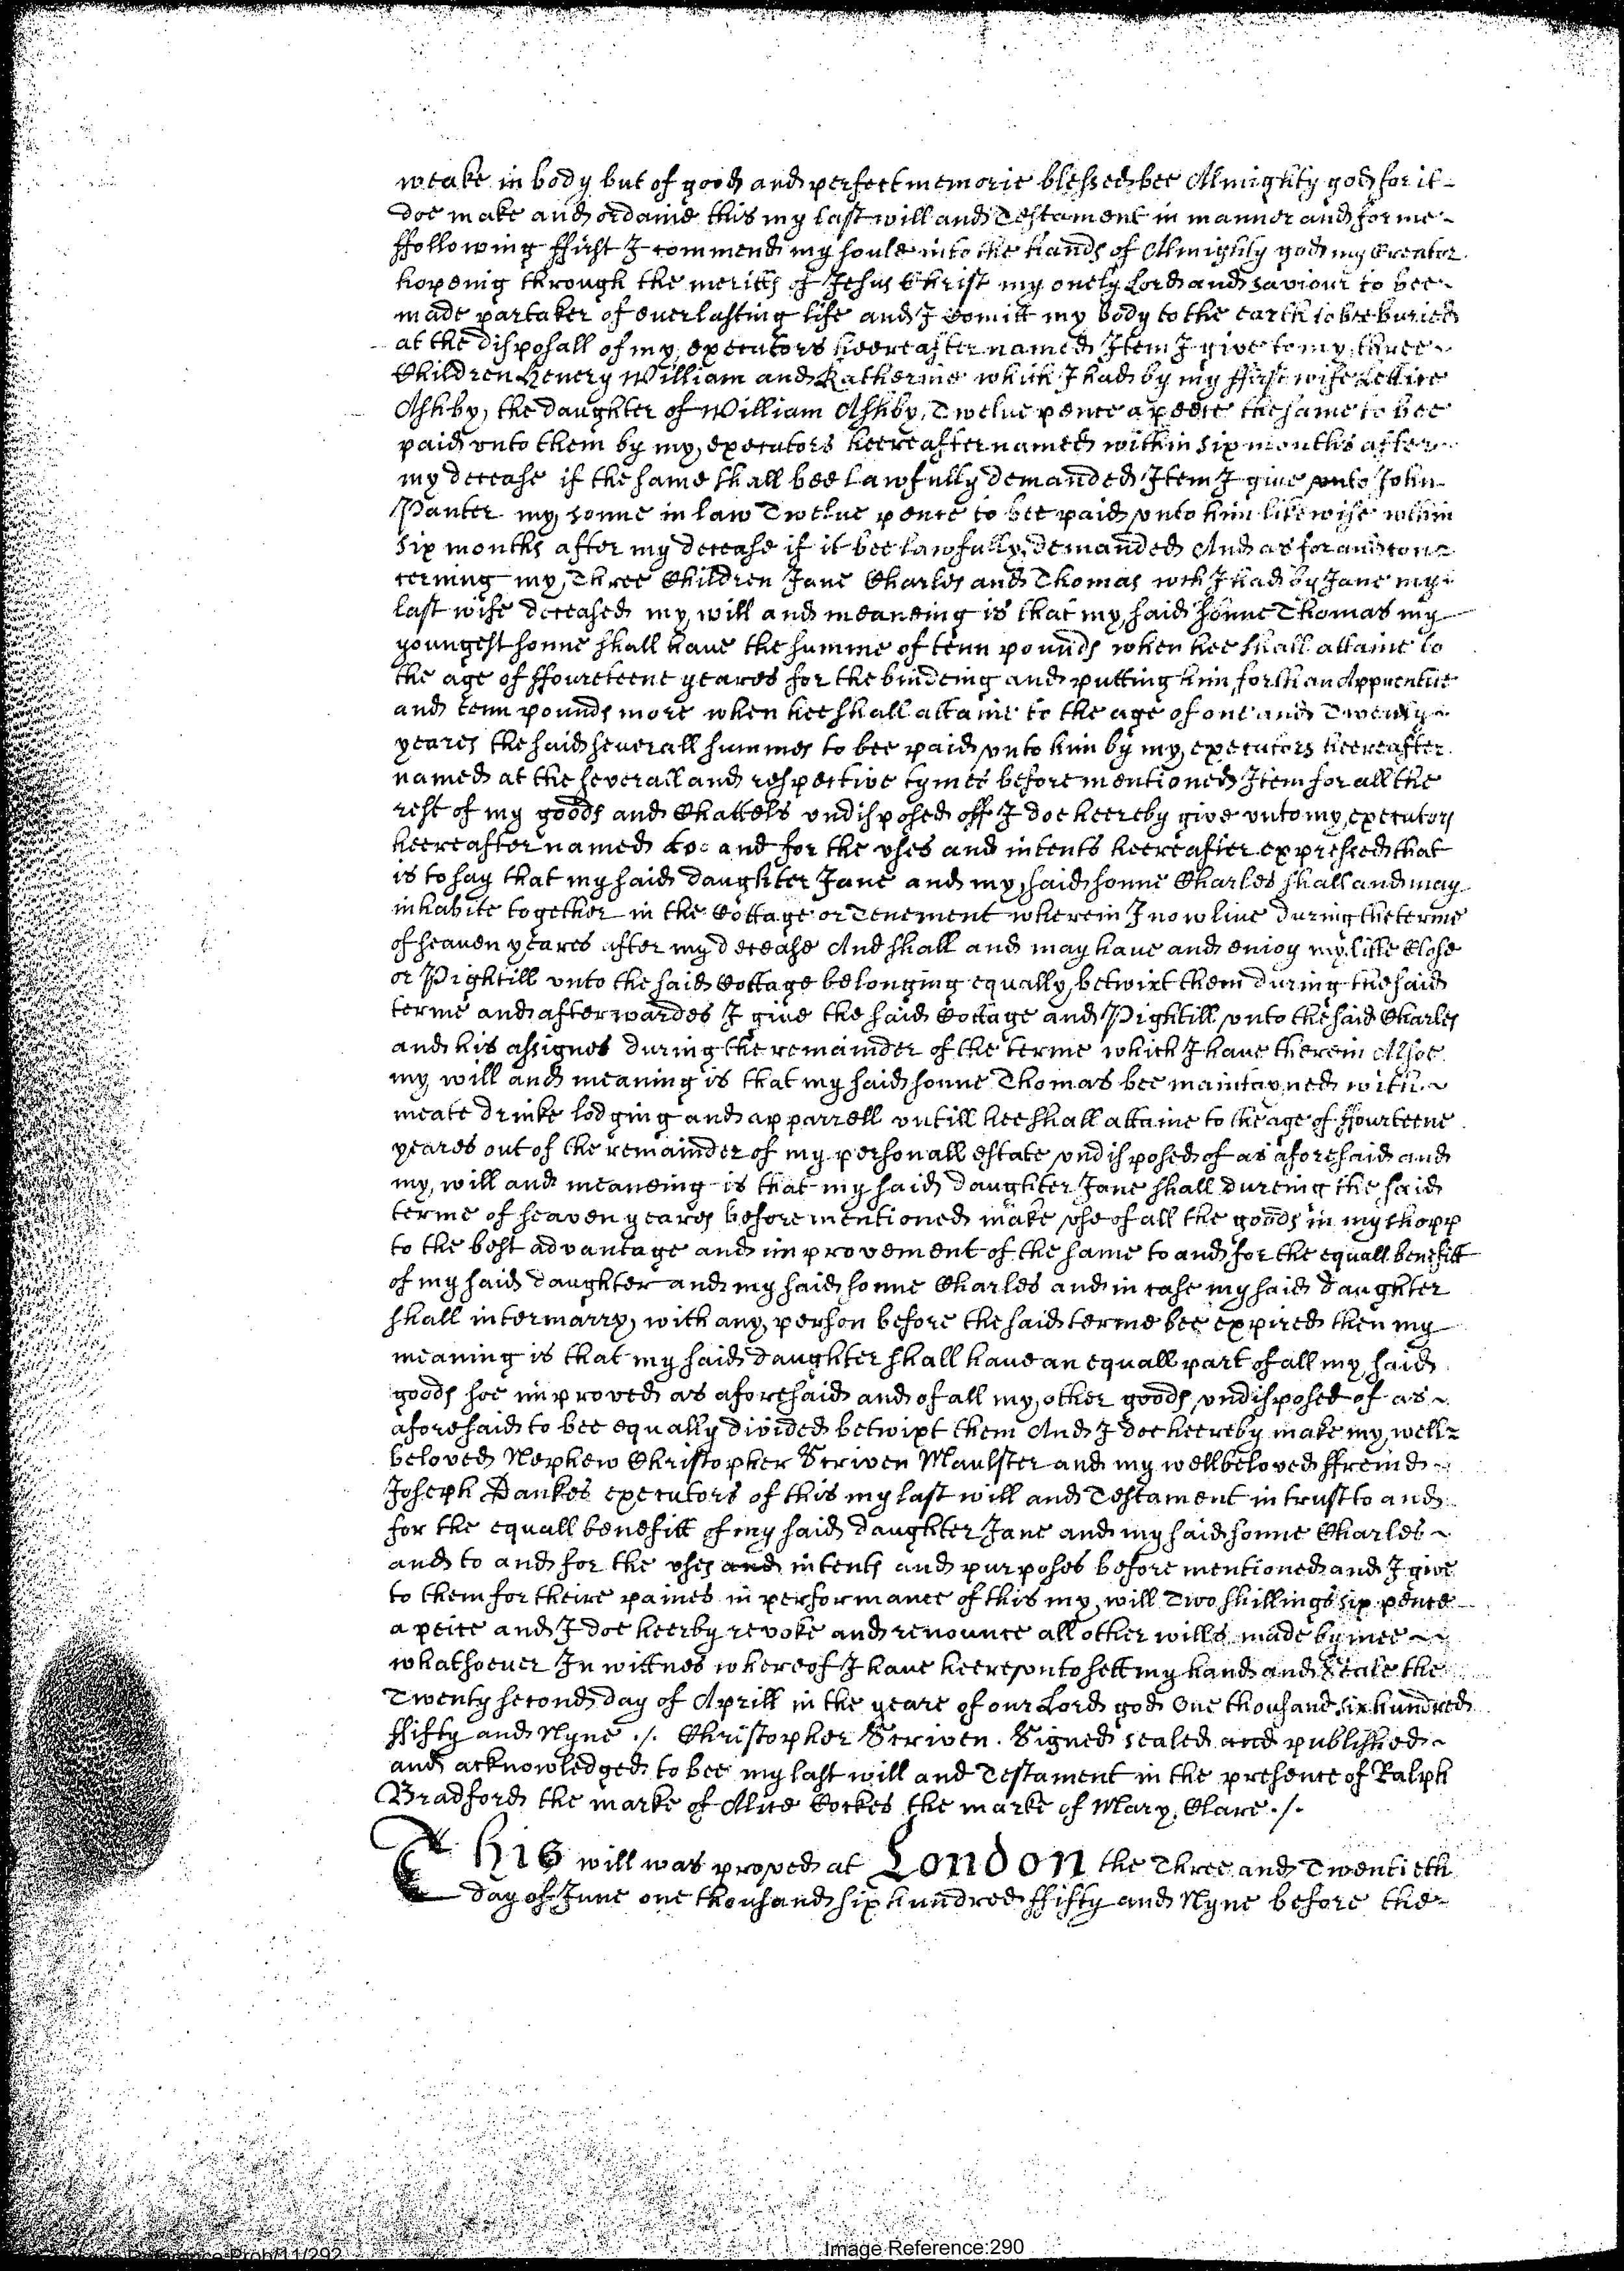 weake in body but of good and perfect memorie blessed bee Almighty god for it
doe make and ordaine this my last will and Testament in manner and forme
ffollowing ffirst I commend my soule into the hands of Almighty god my Creator
hopeing through the meritts of Jesus Christ my onely Lord and Saviour to bee
made partaker of everlasting life and I comitt my body to the earth to bee buried
at the disposall of my executors heereafter named Item I give to my three
Children Henery William and Katherine which I had by my ffirst wife Lettice
Ashby, the daughter of William Ashby, Twelve pence apeece the same to bee
paid vnto them by my executors heereafter named within six months after
my decease if the same shall bee lawfully demanded Item I give vnto John
Panter my sonne in law Twelue pence to bee paid vnto him likewise within
six months after my decease if it bee lawfully demanded And as for and con=
cerning my Three Children Jane Charles and Thomas wch I had by Jane my
last wife deceased my will and meaneing is that my said sonne Thomas my
youngest sonne shall haue the summe of tenn pounds when hee shall attaine to
the age of ffoureteene yeares for the bindeing and putting him forth an Apprentice
and tenn pounds more when hee shall attaine to the age of one and Twenty
yeares the said severall summes to bee paid vnto him by my executors heereafter
named at the severall and respective tymes before mentioned Item for all the
rest of my goods and Chattels vndisposed off I doe heereby give vnto my executors
heereafter named to and for the vses and intents heereafter expressed that
is to say that my said daughter Jane and my said sonne Charles shall and may
inhabite together in the Cottage or Tenement wherein I now liue during the terme
of seauen yeares after my decease And shall and may haue and enioy my litle Close
or Pightill vnto the said Cottage belonging equally betwixt them during the said
terme and afterwardes I giue the said Cottage and Pightill vnto the said Charles
and his assignes during the remainder of the terme which I haue therein Alsoe
my will and meaning is that my said sonne Thomas bee maintayned with
meate drinke lodging and apparrell vntill hee shall attaine to the age of ffourteene
yeares out of the remainder of my personall estate vndisposed of as aforesaid and
my will and meaneing is that my said daughter Jane shall dureing the said
terme of seaven yeares before mentioned make vse of all the goods in my shopp
to the best advantage and improvement of the same to and for the equall benefitt
of my said daughter and my said sonne Charles and in case my said daughter
shall intermarry with any person before the said terme bee expired then my
meaning is that my said daughter shall haue an equall part of all my said
goods soe improved as aforesaid and of all my other goods vndisposed of as
aforesaid to bee equally divided betwixt them And I doe heereby make my well=
beloved Nephew Christopher Scriven Maulster and my wellbeloved ffreind
Joseph Bankes executors of this my last will and Testament in trust to and
for the equall benefitt of my said daughter Jane and my said sonne Charles
and to and for the vses and intents and purposes before mentioned and I give
to them for theire paines in performance of this my will Two shillings six pence
a peice and I doe heerby revoke and renounce all other wills made by mee
whatsoeuer In wittnes whereof I haue heerevnto sett my hand and Seale the
Twenty second day of Aprill in the yeare of our Lord god One thousand six hundred
ffifty and Nyne ./. Christopher Scriven. Signed sealed and published
and acknowledged to bee my last will and Testament in the presence of Ralph
Bradford the marke of Alice Cockes the marke of Mary Clare ./.
This will was proved at London the Three and Twentieth
day of June one thousand six hundred ffifty and Nyne before the
Image Reference:290